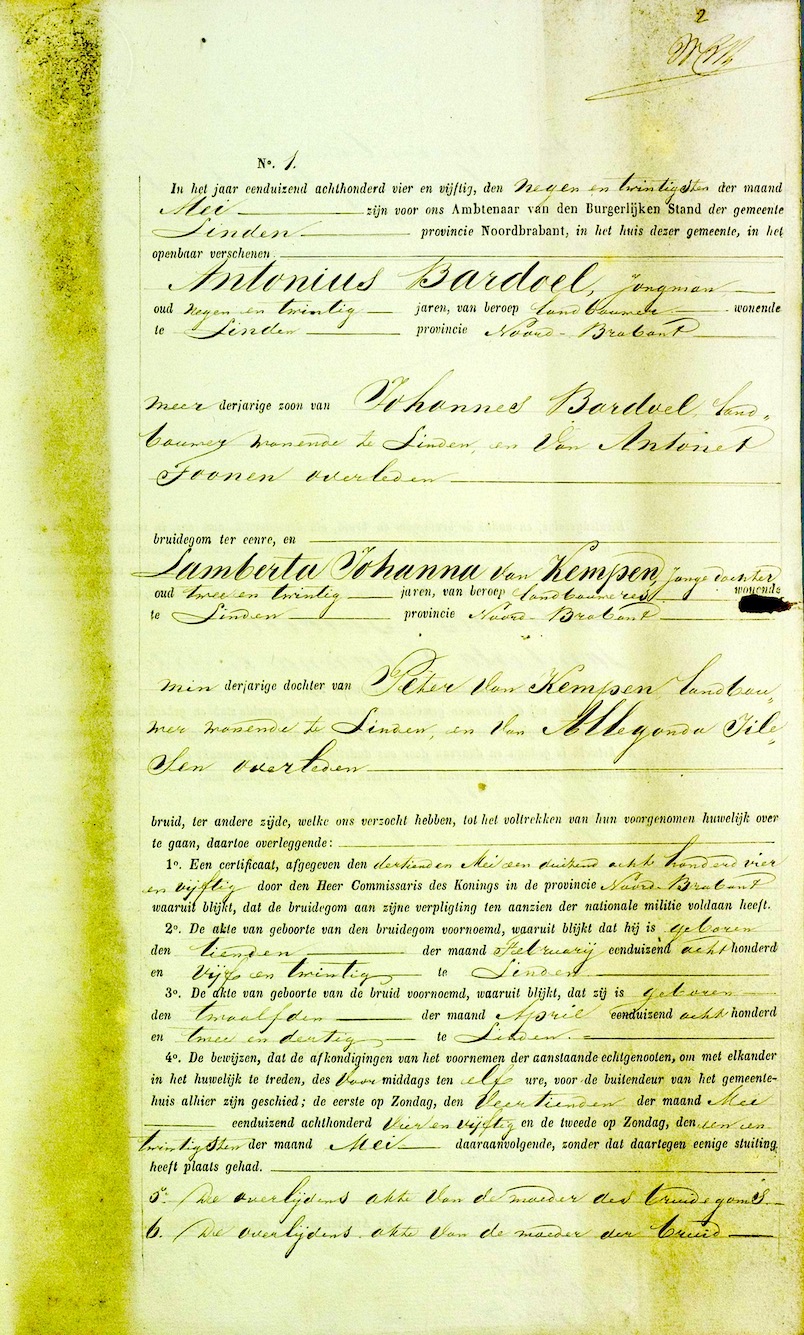 2
No. 1.
In het jaar eenduizend achthonderd vier en vijftig, den negen en twintigsten der maand
Mei zijn voor ons Ambtenaar van den Burgerlijken Stand der gemeente
Linden provincie Noordbrabant, in het huis dezer gemeente, in het
openbaar verschenen
Antonius Bardoel, jongman
oud negen en twintig jaren, van beroep landbouwer wonende
te Linden provincie Noord-Brabant
meer derjarige zoon van Johannes Bardoel, land„
bouwer wonende te Linden, en van Antonet
Toonen overleden
bruidegom ter eenre, en
Lamberta Johanna van Kempen, jonge dochter
oud twee en twintig jaren, van beroep landbouweres wonende
te Linden provincie Noord-Brabant
min derjarige dochter van Peter van Kempen landbou„
wer wonende te Linden, en van Allegonda Jile„
sen overleden
bruid, ter andere zijde, welke ons verzocht hebben, tot het voltrekken van hun voorgenomen huwelijk over
te gaan, daartoe overleggende:
1o. Een certificaat, afgegeven den dertienden Mei een duizend acht honderd vier
en vijftig door den Heer Commissaris des Konings in de provincie Noord-Brabant
waaruit blijkt, dat de bruidegom aan zijne verpligting ten aanzien der nationale militie voldaan heeft.
2o. De akte van geboorte van den bruidegom voornoemd, waaruit blijkt dat hij is geboren
den tienden der maand Februarij eenduizend acht honderd
en vijf en twintig te Linden
3o. De akte van geboorte van de bruid voornoemd, waaruit blijkt, dat zij is geboren
den twaalfden der maand April eenduizend acht honderd
en twee en dertig te Linden.
4o. De bewijzen, dat de afkondigingen van het voornemen der aanstaande echtgenooten, om met elkander
in het huwelijk te treden, des voor middags ten elf ure, voor de buitendeur van het gemeente-
huis alhier zijn geschied; de eerste op Zondag, den veertienden der maand Mei
eenduizend achthonderd vier en vijftig en de tweede op Zondag, den een en
twintigsten der maand Mei daaraanvolgende, zonder dat daartegen eenige stuiting
heeft plaats gehad.
5o. De overlijdens akte van de moeder des bruidegoms
6. De overlijdens akte van de moeder der bruid